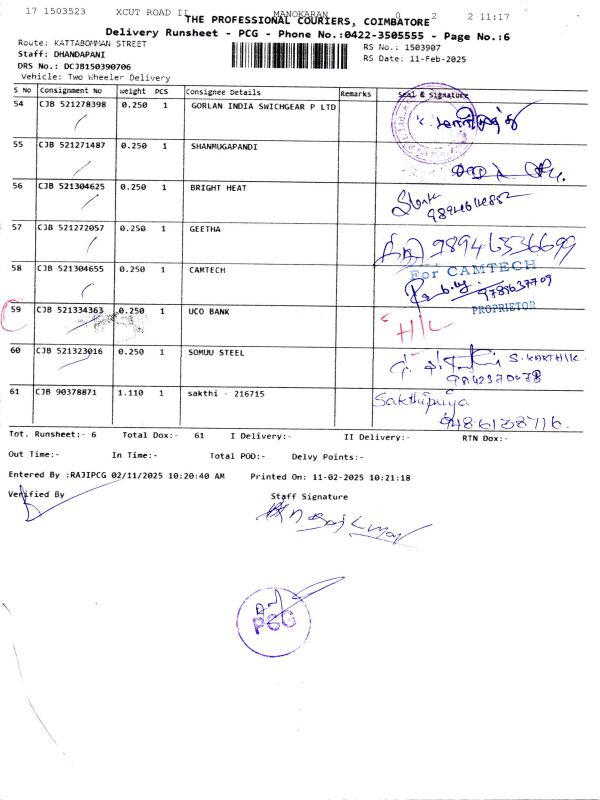 17 1503523 XCUT ROAD II MANOKARAN 0 2 2 11:17
THE PROFESSIONAL COURIERS, COIMBATORE
Delivery Runsheet - PCG - Phone No.:0422-3505555 - Page No.:6
Route: KATTABOMMAN STREET RS No.: 1503907
Staff: DHANDAPANI RS Date: 11-Feb-2025
DRS No.: DCJB150390706
Vehicle: Two Wheeler Delivery
S No Consignment No Weight PCS Consignee Details Remarks Seal & Signature
54 CJB 521278398 0.250 1 GORLAN INDIA SWICHGEAR P LTD
55 CJB 521271487 0.250 1 SHANMUGAPANDI
56 CJB 521304625 0.250 1 BRIGHT HEAT
57 CJB 521272057 0.250 1 GEETHA 98946536699
58 CJB 521304655 0.250 1 CAMTECH For CAMTECH
9789637709
PROPRIETOR
59 CJB 521334363 0.250 1 UCO BANK H/L
60 CJB 521323016 0.250 1 SOMUU STEEL
61 CJB 90378871 1.110 1 sakthi - 216715 Sakthipriya
9486138716.
Tot. Runsheet:- 6 Total Dox:- 61 I Delivery:- II Delivery:- RTN Dox:-
Out Time:- In Time:- Total POD:- Delvy Points:-
Entered By :RAJIPCG 02/11/2025 10:20:40 AM Printed On: 11-02-2025 10:21:18
Verified By Staff Signature
PCG